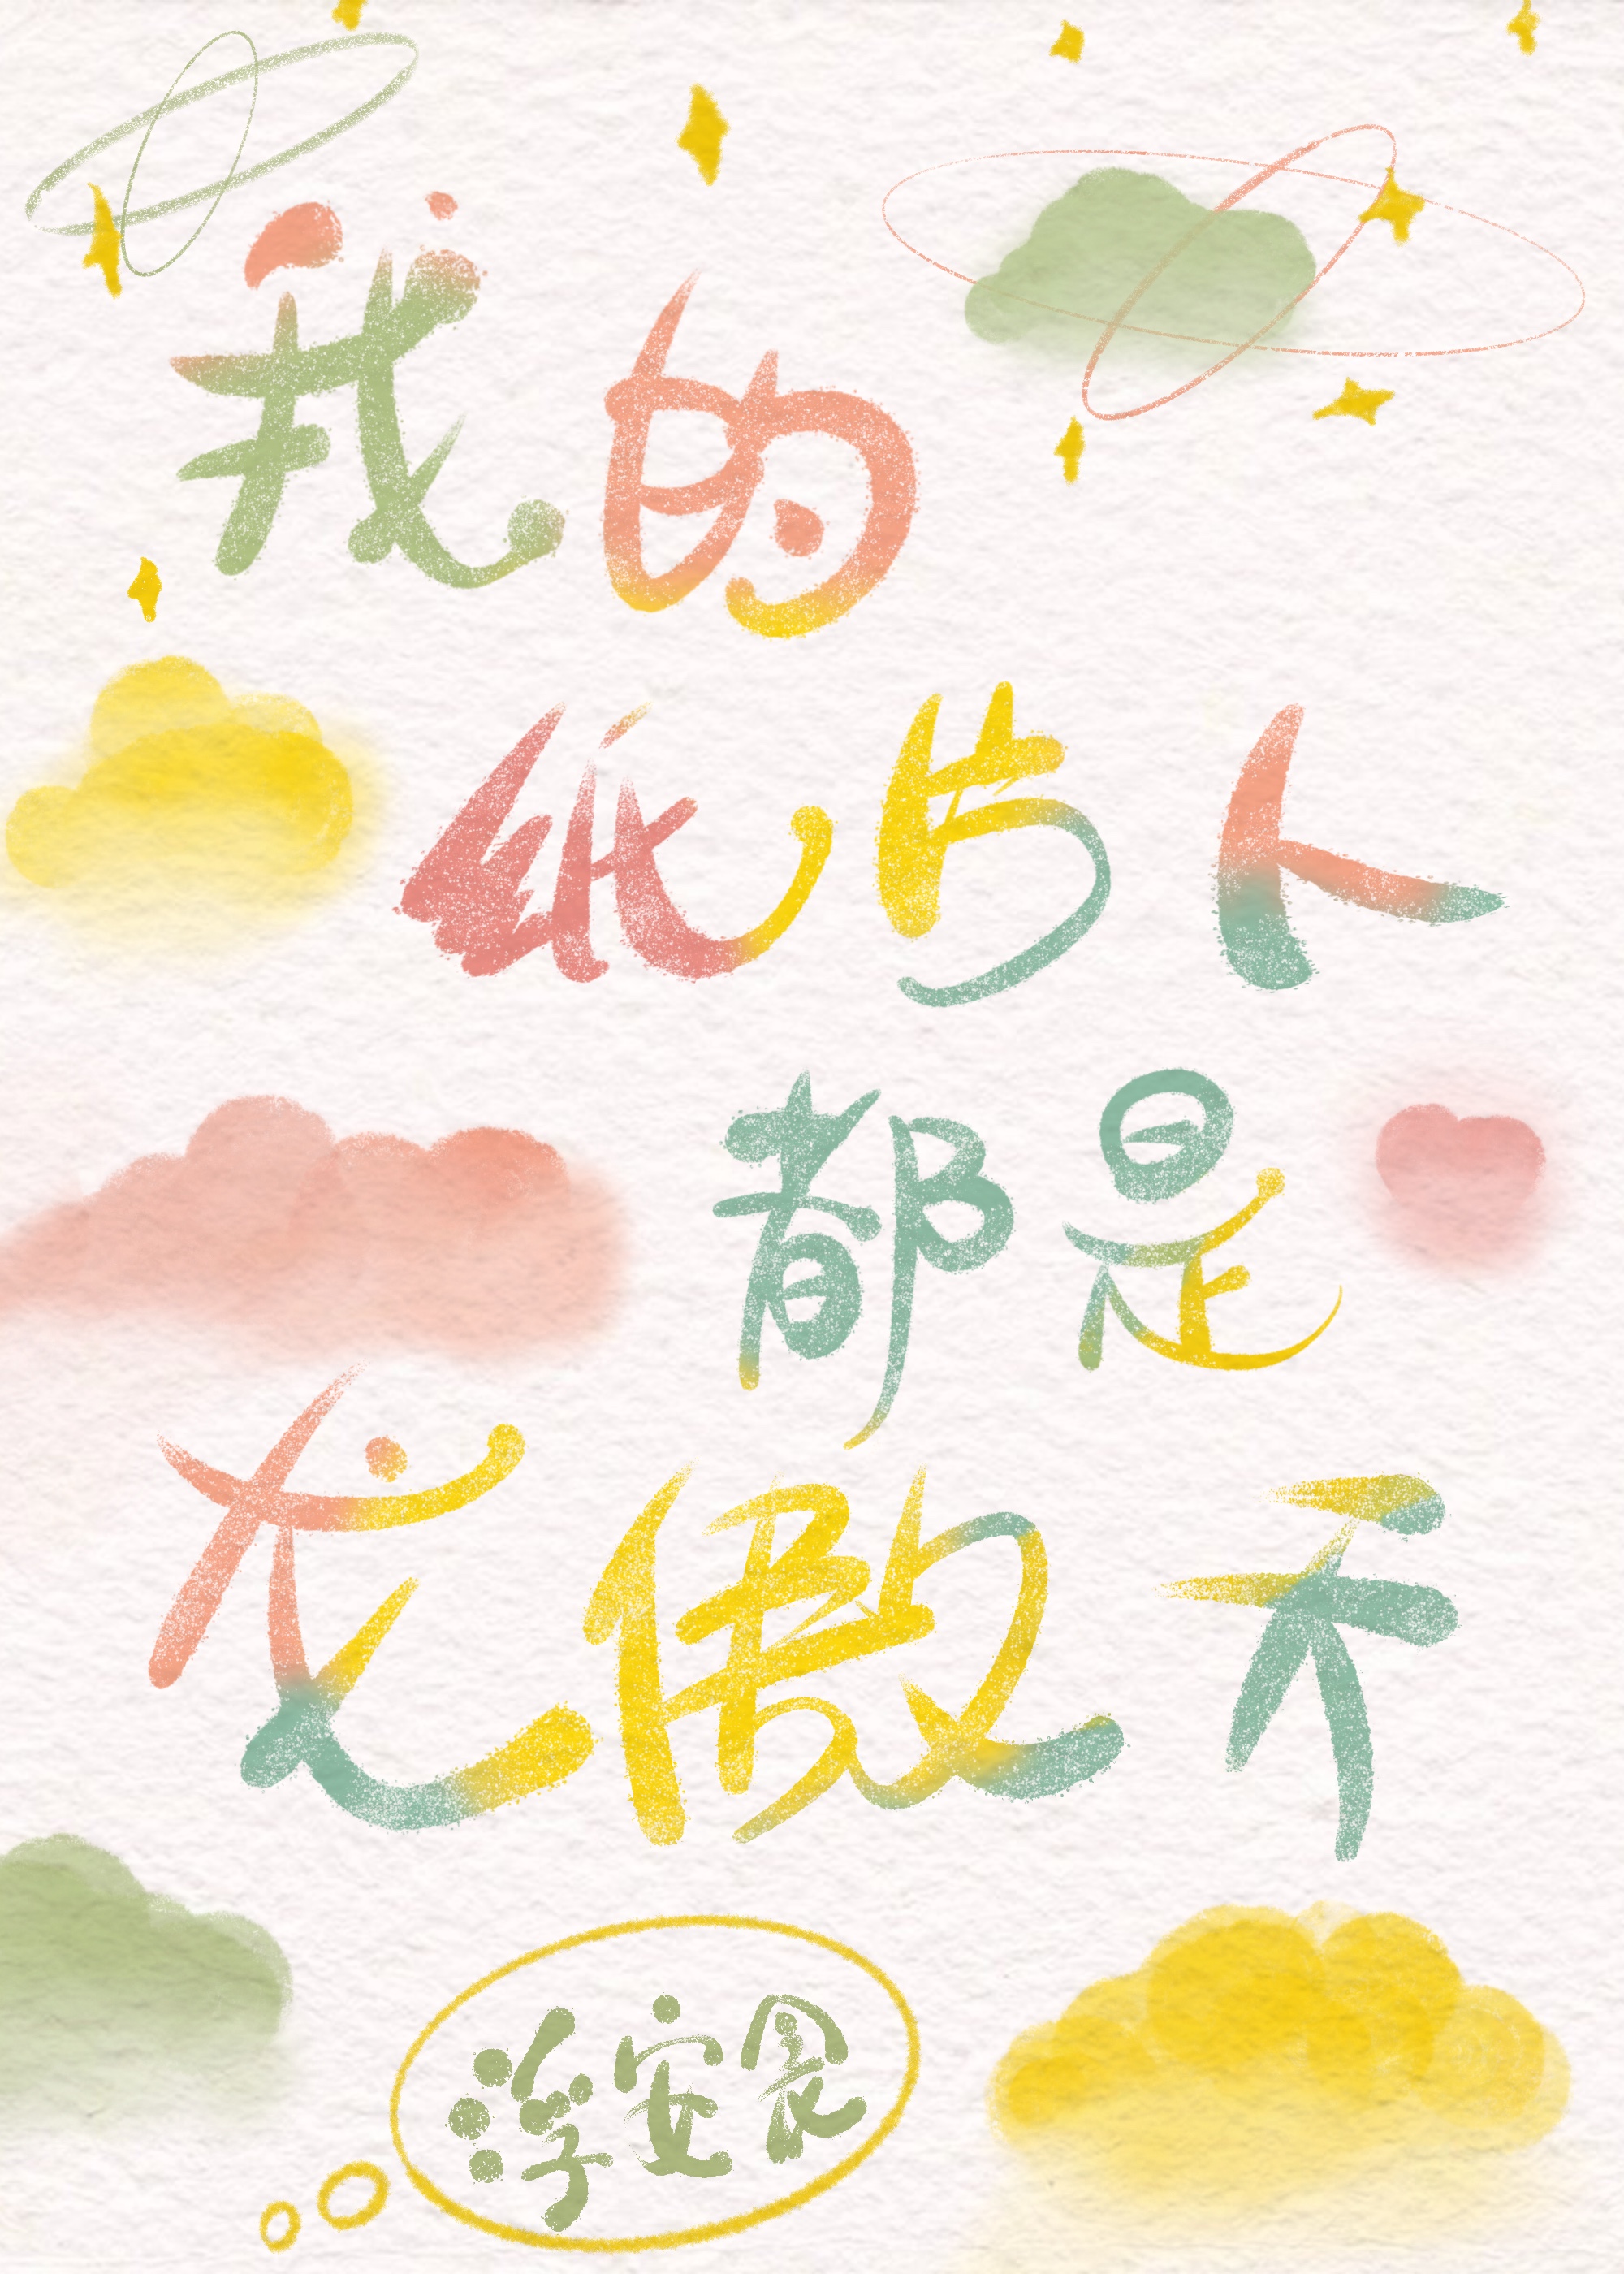 我的
纸片人
都是
龙傲天
浮安景